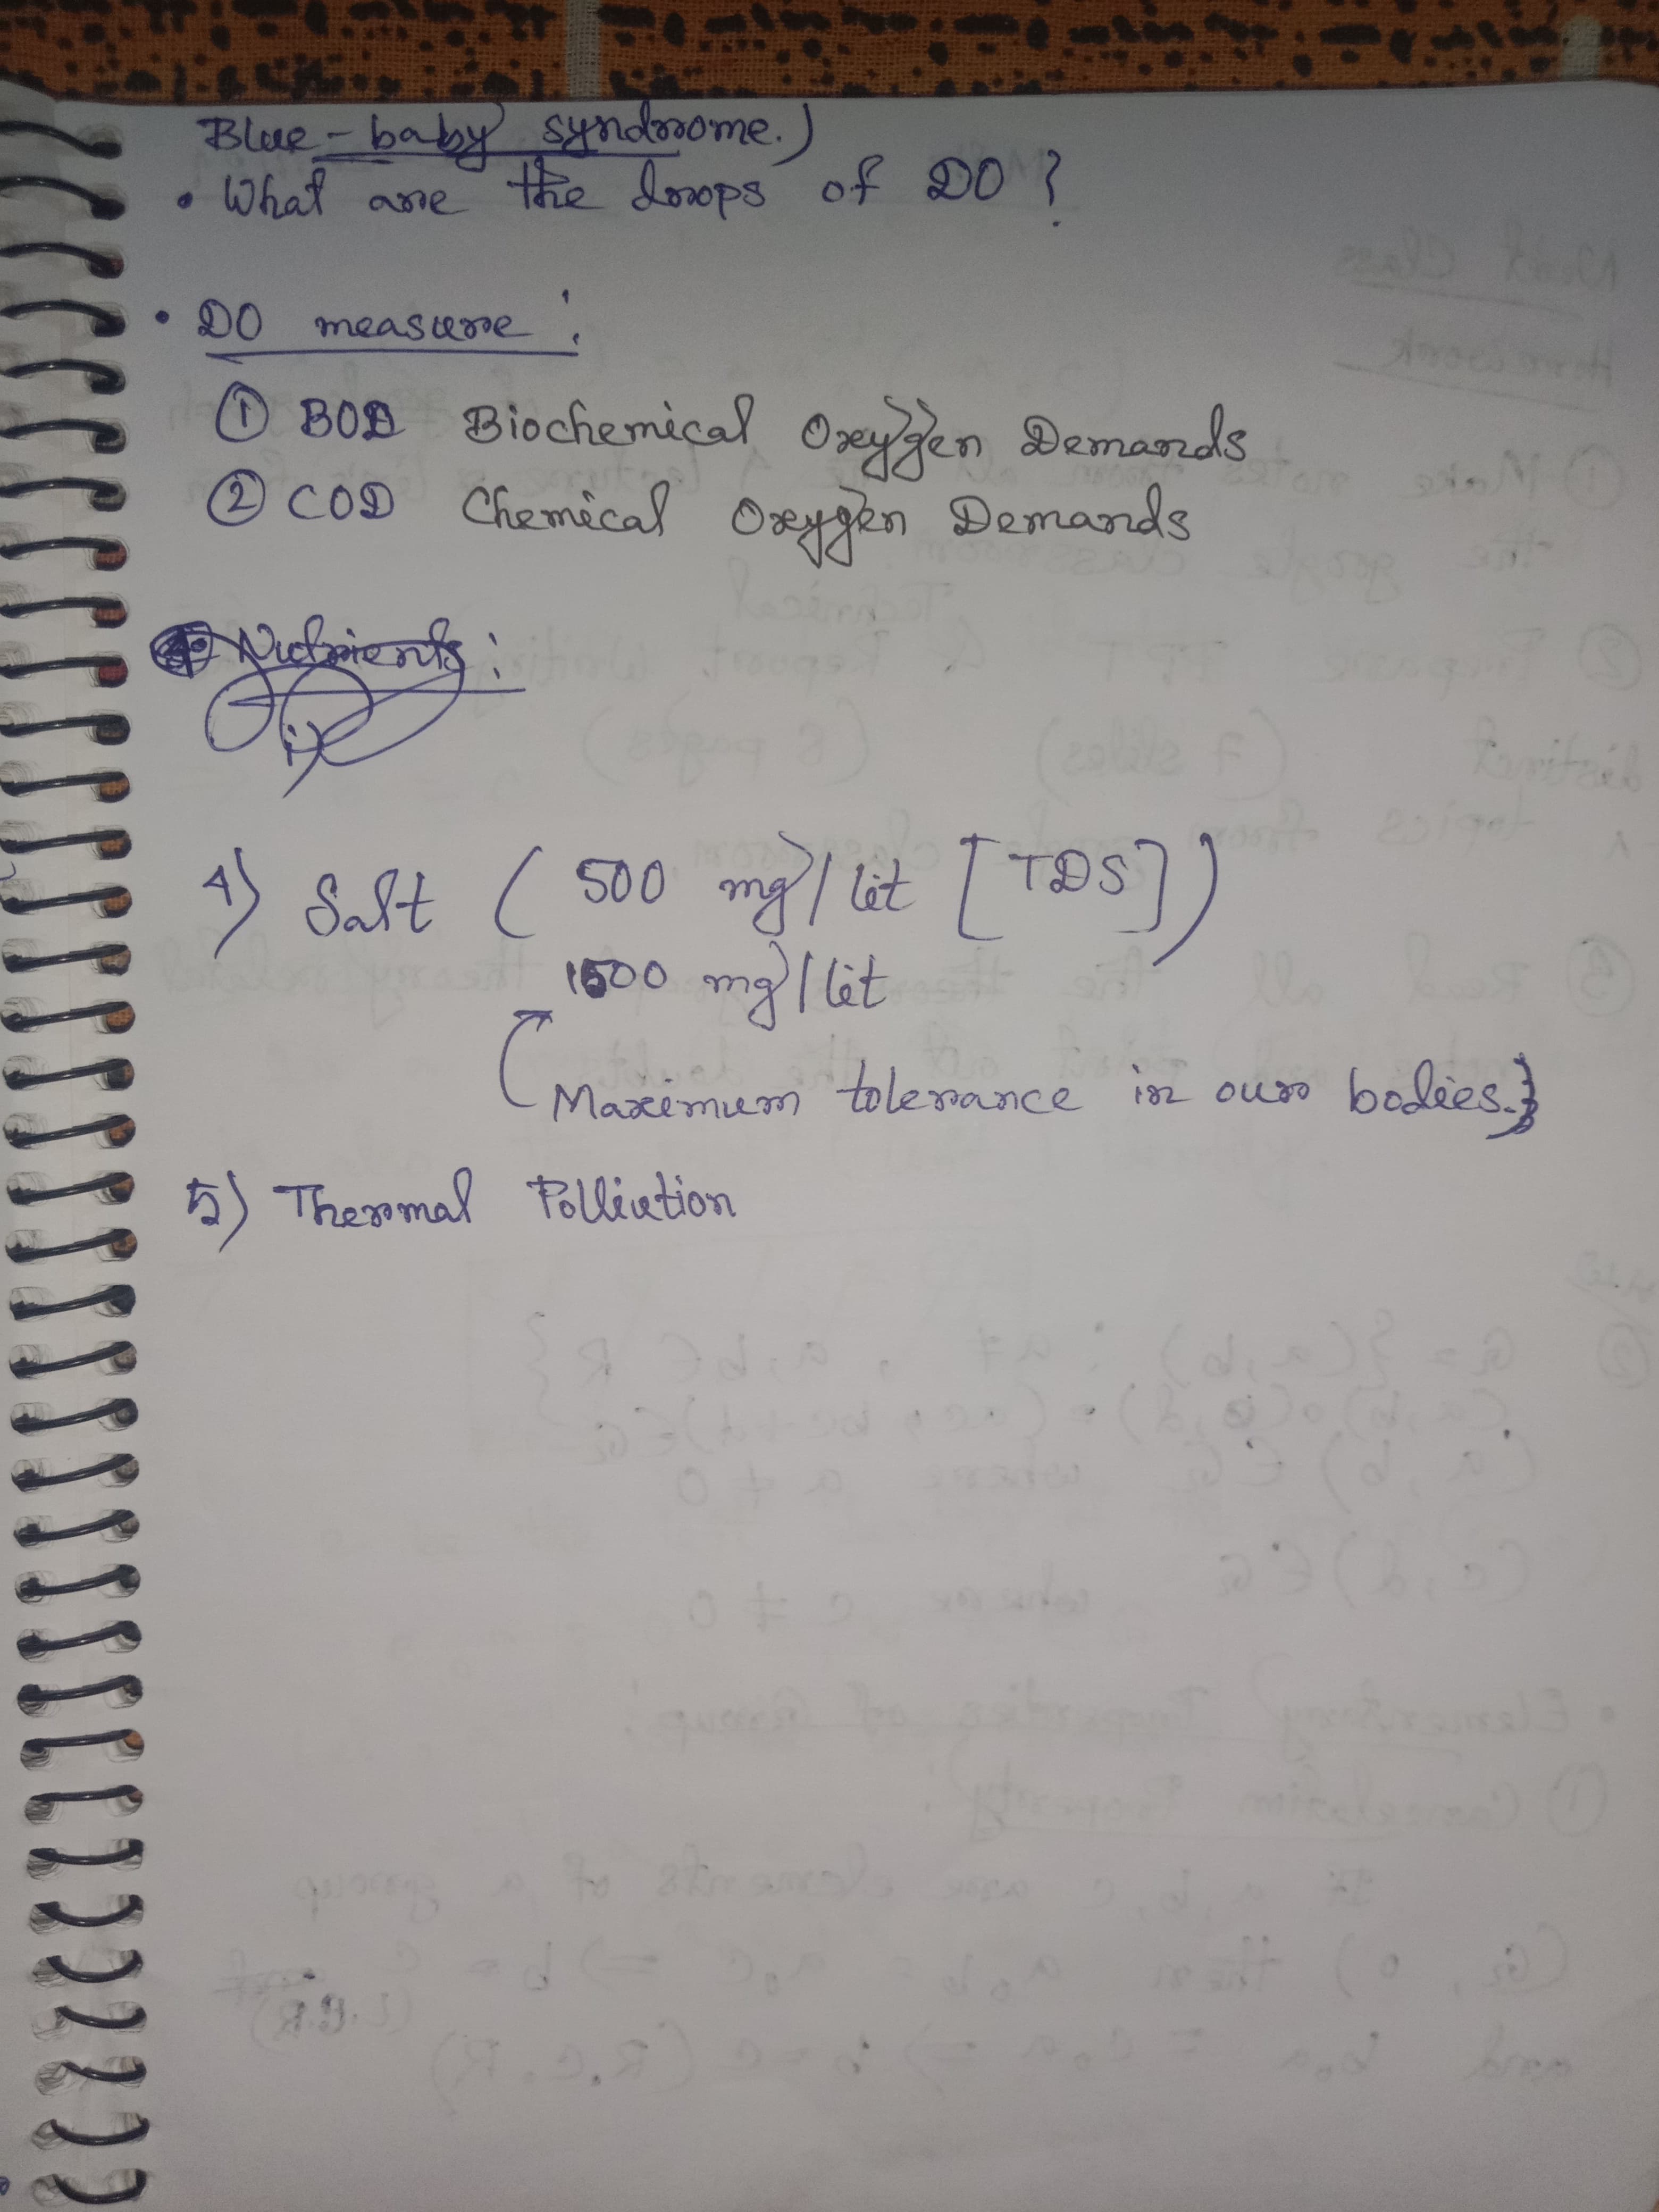 Blue-baby syndrome.)
• What are the drops of DO ?
• DO measure :
① BOD Biochemical Oxygen Demands
② COD Chemical Oxygen Demands
Nutrients :
i)
4) Salt ( 500 mg/lit [TDS] )
1500 mg/lit
Maximum tolerance in our bodies.}
5) Thermal Pollution